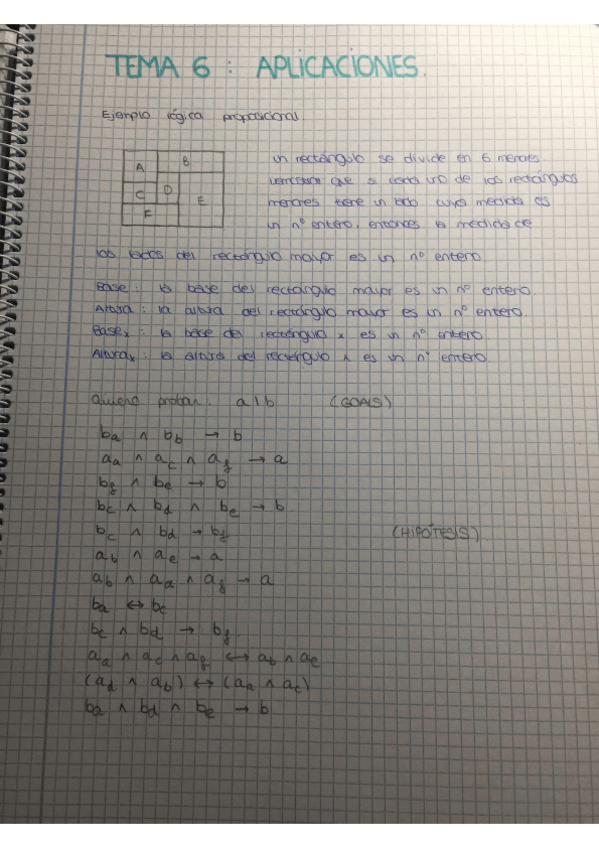 TEMA 6 : APLICACIONES.
Ejemplo lógica proposicional
A B C D E F
un rectángulo se divide en 6 menores
verificar que si cada uno de los rectángulos
menores tiene un lado cuya medida es
un nº entero, entonces la medida de
los lados del rectángulo mayor es un nº entero
Base : la base del rectángulo mayor es un nº entero
Altura : la altura del rectángulo mayor es un nº entero.
Baseₓ : la base del rectángulo x es un nº entero.
Alturaₓ : la altura del rectángulo x es un nº entero
Quiero probar : a | b (GOALS)
ba ∧ bb → b
aa ∧ ac ∧ af → a
bf ∧ be → b
bc ∧ bd ∧ be → b
bc ∧ bd → bf (HIPÓTESIS)
ab ∧ ae → a
ab ∧ aa ∧ af → a
ba ↔ bc
bc ∧ bd → bf
aa ∧ ac ∧ af ↔ ab ∧ ae
(ad ∧ ab) ↔ (aa ∧ ac)
ba ∧ bd ∧ be → b